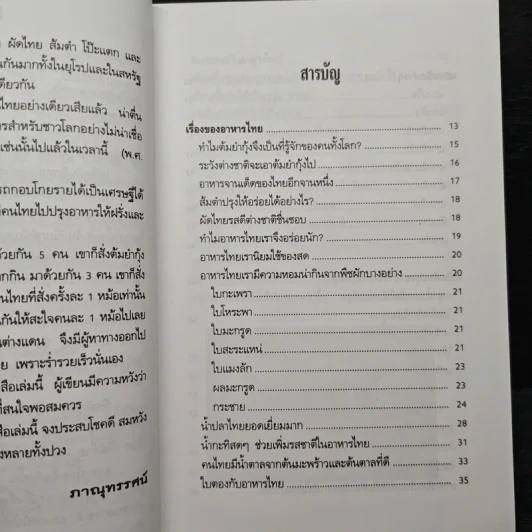 ผัดไทย ส้มตำ โป๊ะแตก และ
กันมากทั้งในยุโรปและในสหรัฐ
ดียวกัน
ไทยอย่างเดียวเสียแล้ว น่าตื่น
รสำหรับชาวโลกอย่างไม่น่าเชื่อ
เช่นนั้นไปแล้วในเวลานี้ (พ.ศ.
รถกอบโกยรายได้เป็นเศรษฐีได้
มีคนไทยไปปรุงอาหารให้ฝรั่งและ
ด้วยกัน 5 คน เขาก็สั่งต้มยำกุ้ง
ากกิน มาด้วยกัน 3 คน เขาก็สั่ง
นไทยที่สั่งครั้งละ 1 หม้อเท่านั้น
กันให้สะใจคนละ 1 หม้อไปเลย
นต่างแดน จึงมีผู้หาทางออกไป
ย เพราะร่ำรวยเร็วนั่นเอง
สือเล่มนี้ ผู้เขียนมีความหวังว่า
ที่สนใจพอสมควร
สือเล่มนี้ จงประสบโชคดี สมหวัง
งหลายทั้งปวง
ภาณุทรรศน์
สารบัญ
เรื่องของอาหารไทย 13
ทำไมต้มยำกุ้งจึงเป็นที่รู้จักของคนทั้งโลก? 15
ระวังต่างชาติจะเอาต้มยำกุ้งไป 16
อาหารจานเด็ดของไทยอีกจานหนึ่ง 17
ส้มตำปรุงให้อร่อยได้อย่างไร? 18
ผัดไทยรสดีต่างชาติชื่นชอบ 18
ทำไมอาหารไทยเราจึงอร่อยนัก? 19
อาหารไทยเรานิยมใช้ของสด 20
อาหารไทยเรามีความหอมน่ากินจากพืชผักบางอย่าง 20
ใบกะเพรา 21
ใบโหระพา 21
ใบมะกรูด 21
ใบสะระแหน่ 21
ใบแมงลัก 23
ผลมะกรูด 23
กระชาย 24
น้ำปลาไทยยอดเยี่ยมมาก 28
น้ำกะทิสดๆ ช่วยเพิ่มรสชาติในอาหารไทย 31
คนไทยมีน้ำตาลจากต้นมะพร้าวและต้นตาลที่ดี 33
ใบตองกับอาหารไทย 35